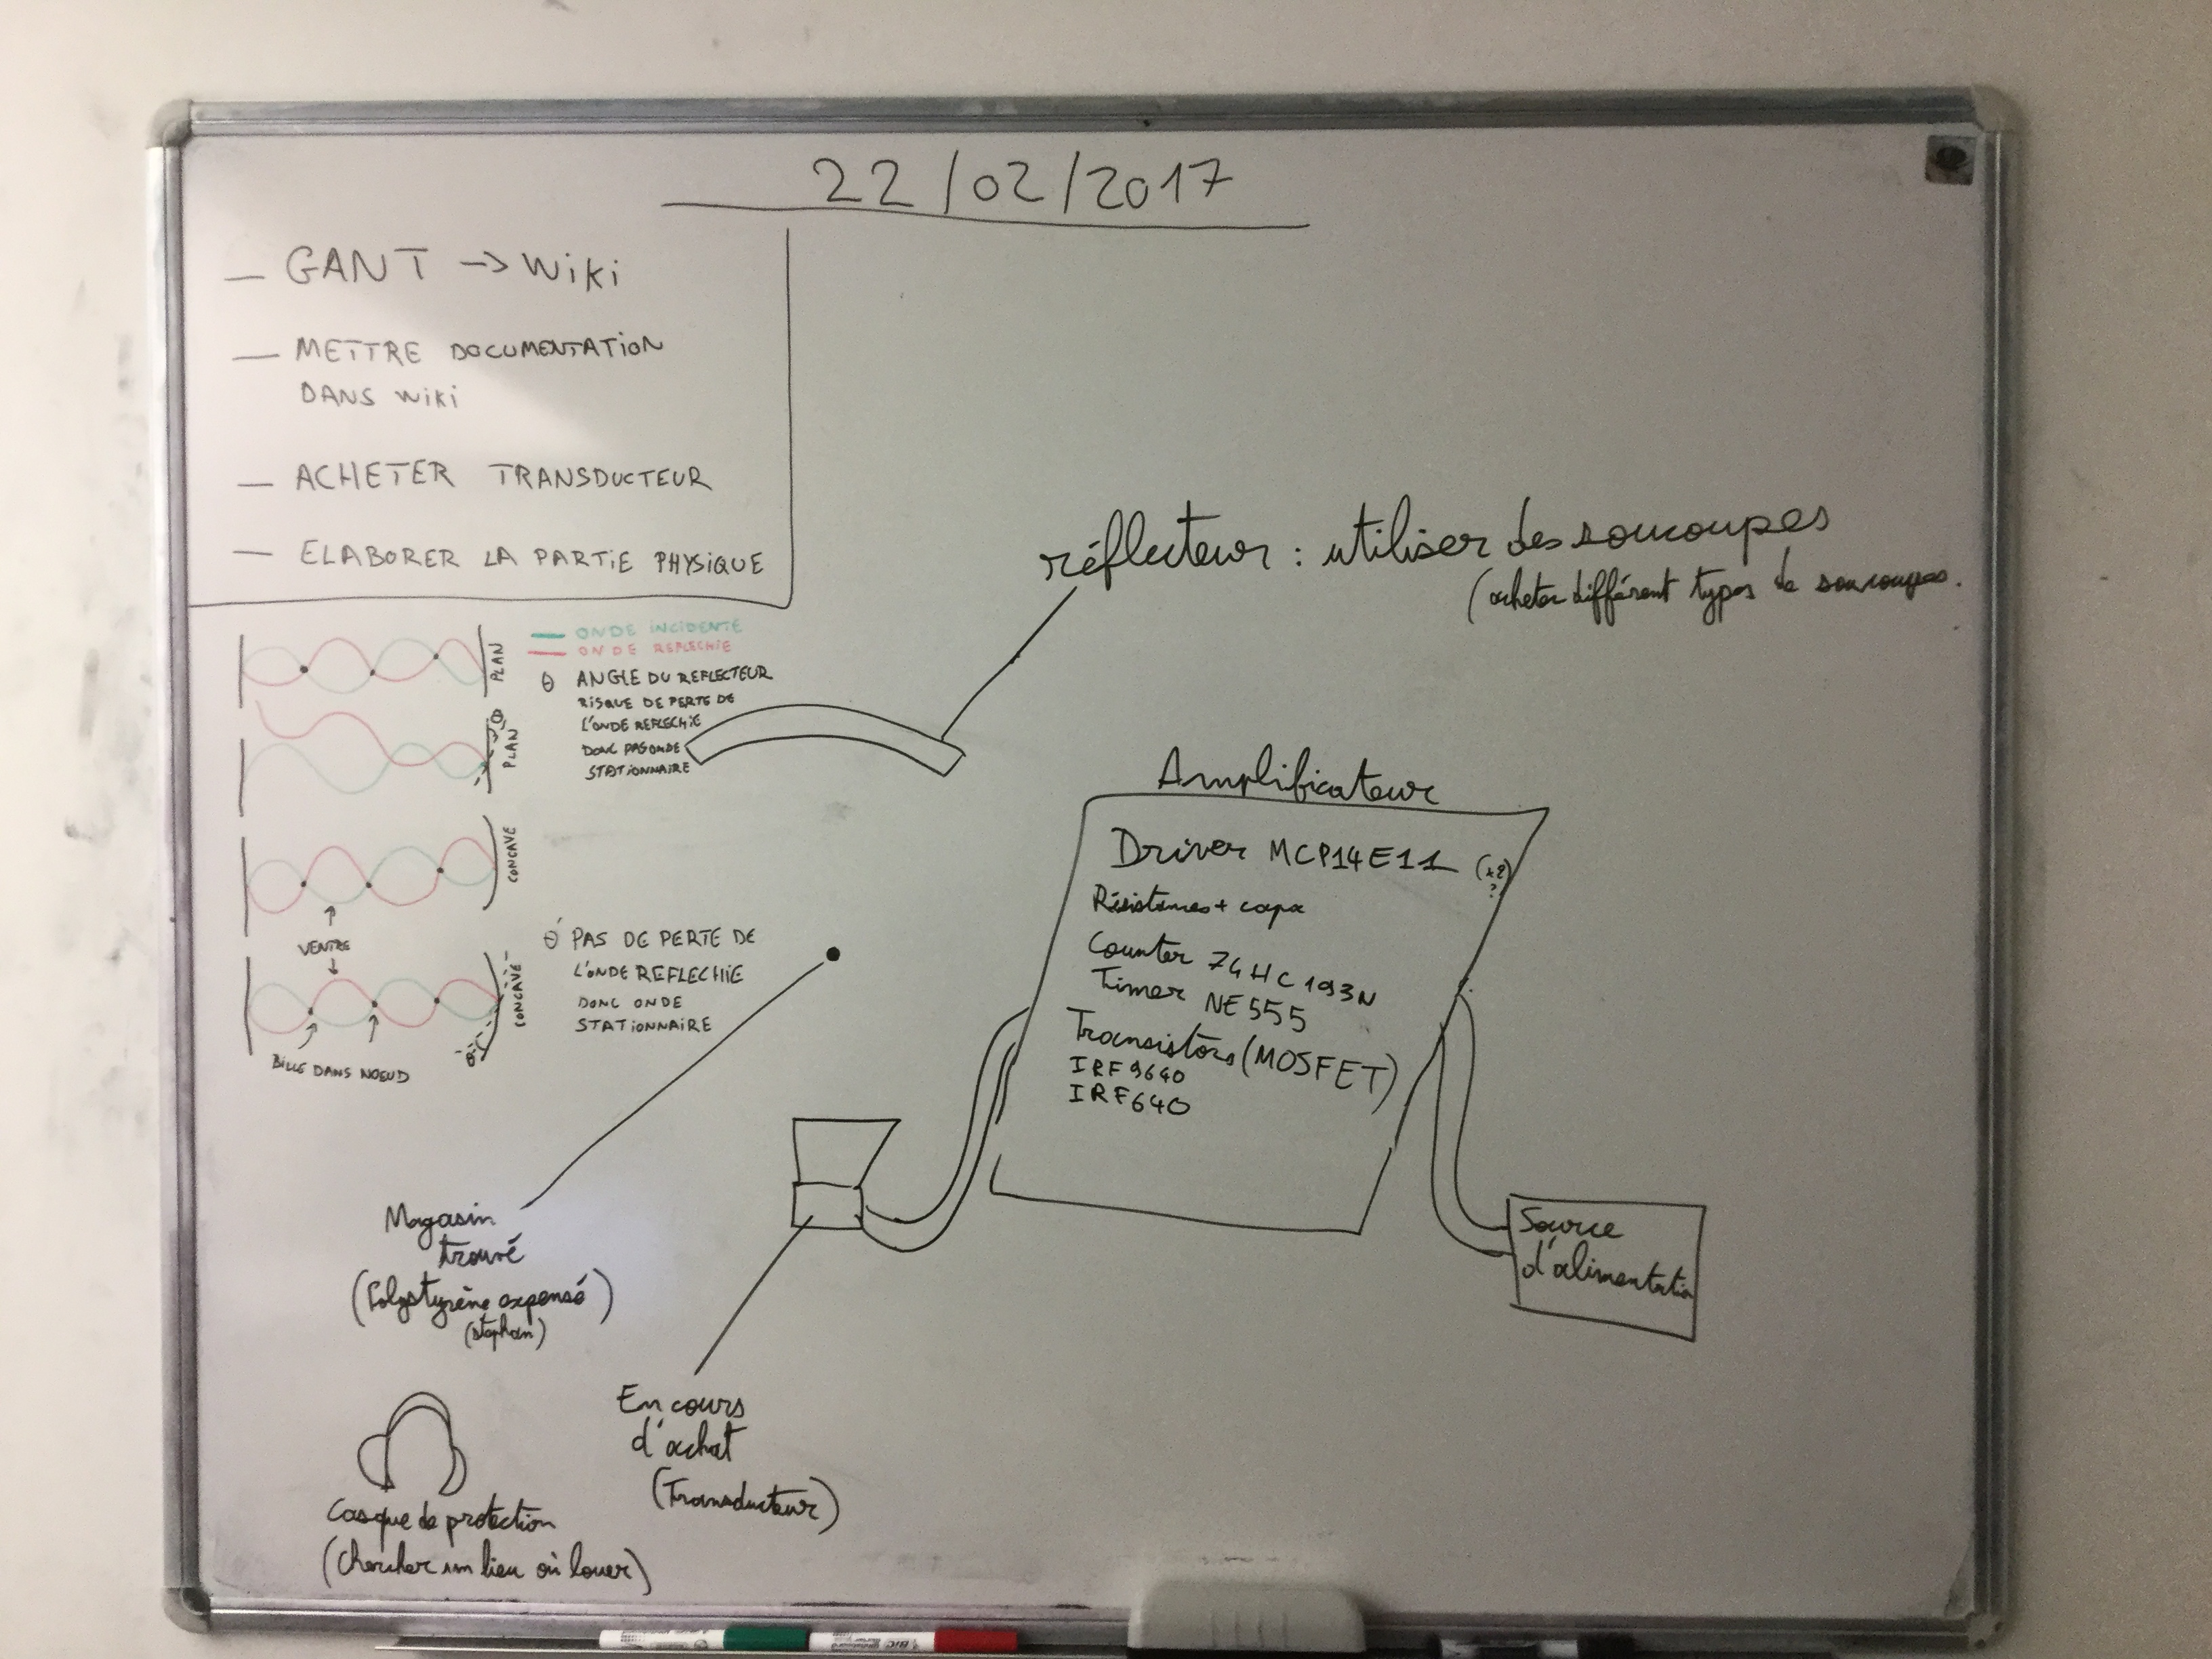 22/02/2017
— GANT -> Wiki
— METTRE DOCUMENTATION
DANS Wiki
— ACHETER TRANSDUCTEUR
— ELABORER LA PARTIE PHYSIQUE
PLAN
ONDE INCIDENTE
ONDE REFLECHIE
θ ANGLE DU REFLECTEUR
RISQUE DE PERTE DE
L'ONDE REFLECHIE
DONC PAS ONDE
STATIONNAIRE
θ
PLAN
CONCAVE
VENTRE
CONCAVE
θ
BILLE DANS NOEUD
θ PAS DE PERTE DE
L'ONDE REFLECHIE
DONC ONDE
STATIONNAIRE
réflecteur : utiliser des soucoupes
(acheter différent types de soucoupes.
Amplificateur
Driver MCP14E11 (x2)
?
Résistances + capa
Counter 74HC193N
Timer NE555
Transistors (MOSFET)
IRF9640
IRF640
Source
d'alimentation
Magasin
trouvé
(Polystyrène expensé)
(stephan)
En cours
d'achat
(Transducteur)
Casque de protection
(Chercher un lieu où louer)
BIC